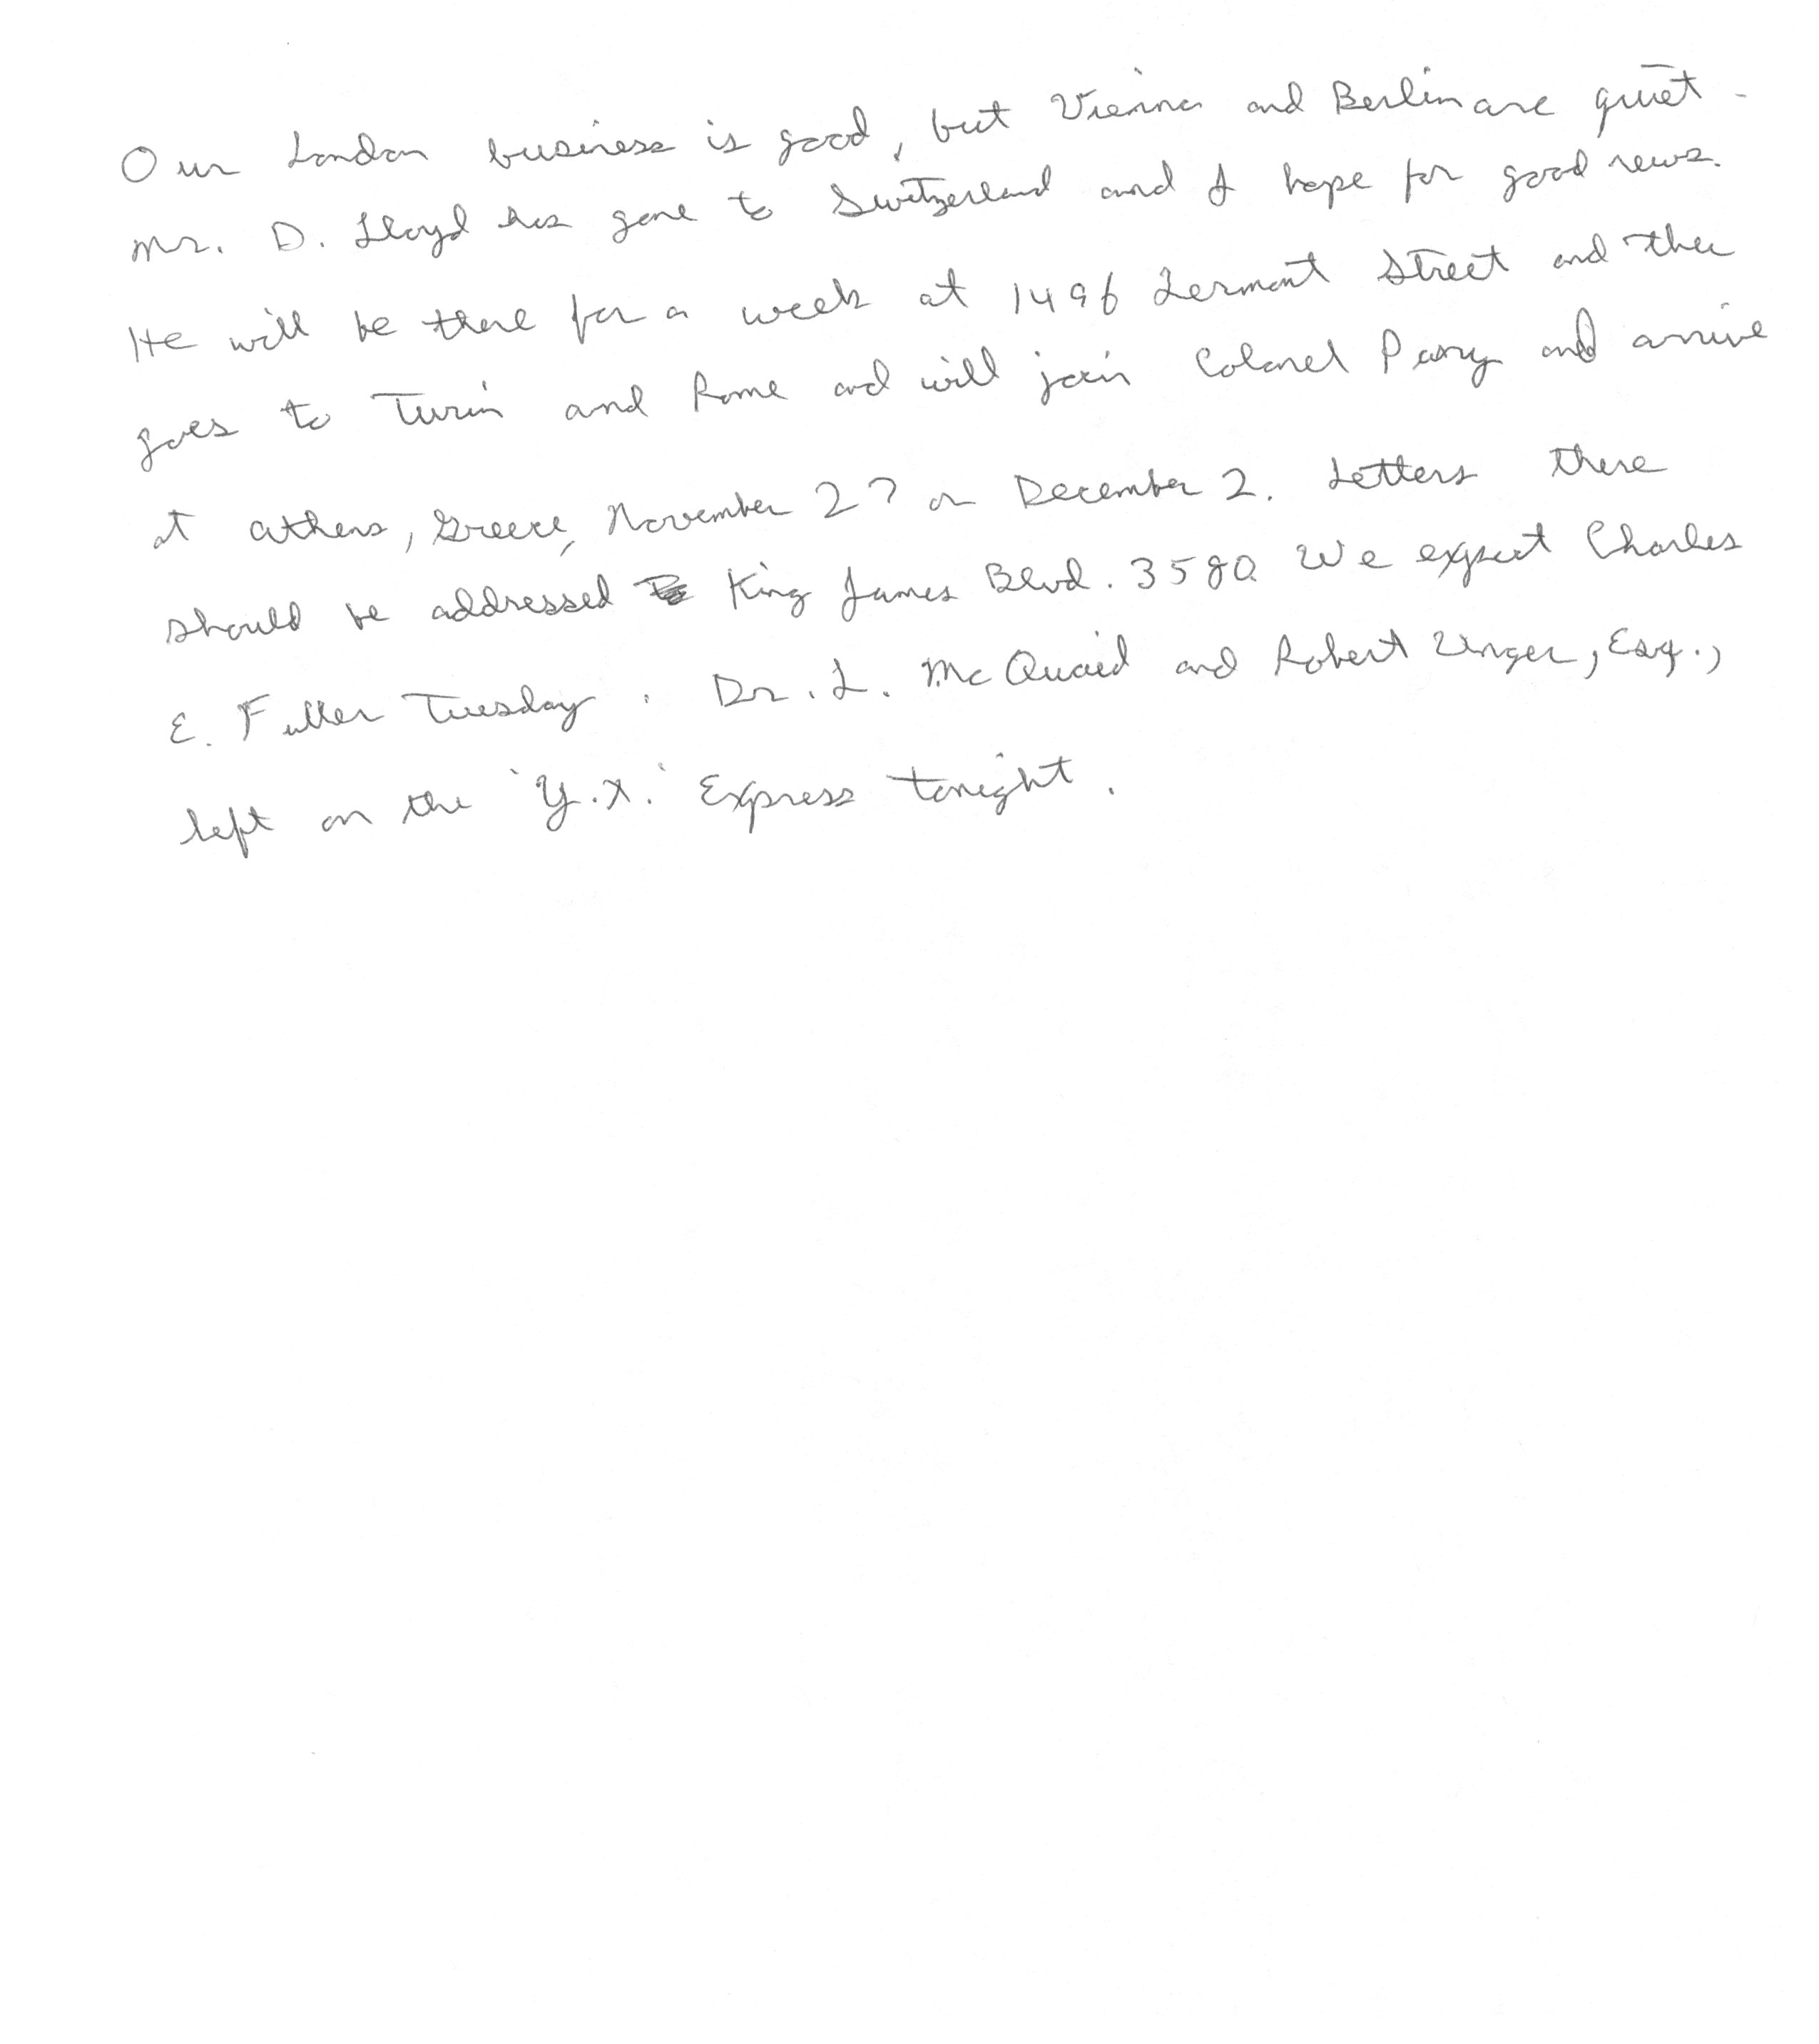 Our London business is good, but Vienna and Berlin are quiet.
Mr. D. Lloyd has gone to Switzerland and I hope for good news.
He will be there for a week at 1496 Zermont Street and then
goes to Turin and Rome and will join Colonel Parry and arrive
at Athens, Greece, November 27 or December 2. Letters there
should be addressed King James Blvd. 3580. We expect Charles
E. Fuller Tuesday. Dr. L. McQuaid and Robert Unger, Esq.,
left on the 'Y.X.' Express tonight.